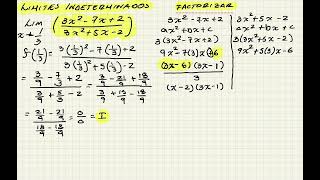 LIMITES INDETERMINADOS
Lim x→1/3 (3x²-7x+2 / 3x²+5x-2)
f(1/3) = 3(1/3)²-7(1/3)+2 / 3(1/3)²+5(1/3)-2
= 3/9 - 7/3 + 2 / 3/9 + 5/3 - 2 = 3/9 - 21/9 + 18/9 / 3/9 + 15/9 - 18/9
= 21/9 - 21/9 / 18/9 - 18/9 = 0/0 = I
FACTORIZAR
3x²-7x+2
ax²+bx+c
3(3x²-7x+2)
9x²-7(3)x
(3x-6)(3x-1)
3
(x-2)(3x-1)
3x²+5x-2
ax²+bx+c
3(3x²+5x-2)
9x²+5(3)x-6